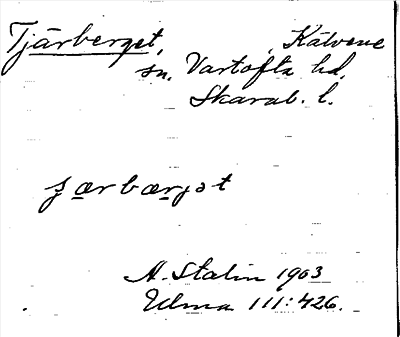 Tjärberget, Kälvene
sn. Vartofta hd.
Skarab. l.
ʃærbærjət
A. Stalin 1903
Ulma 111:426.